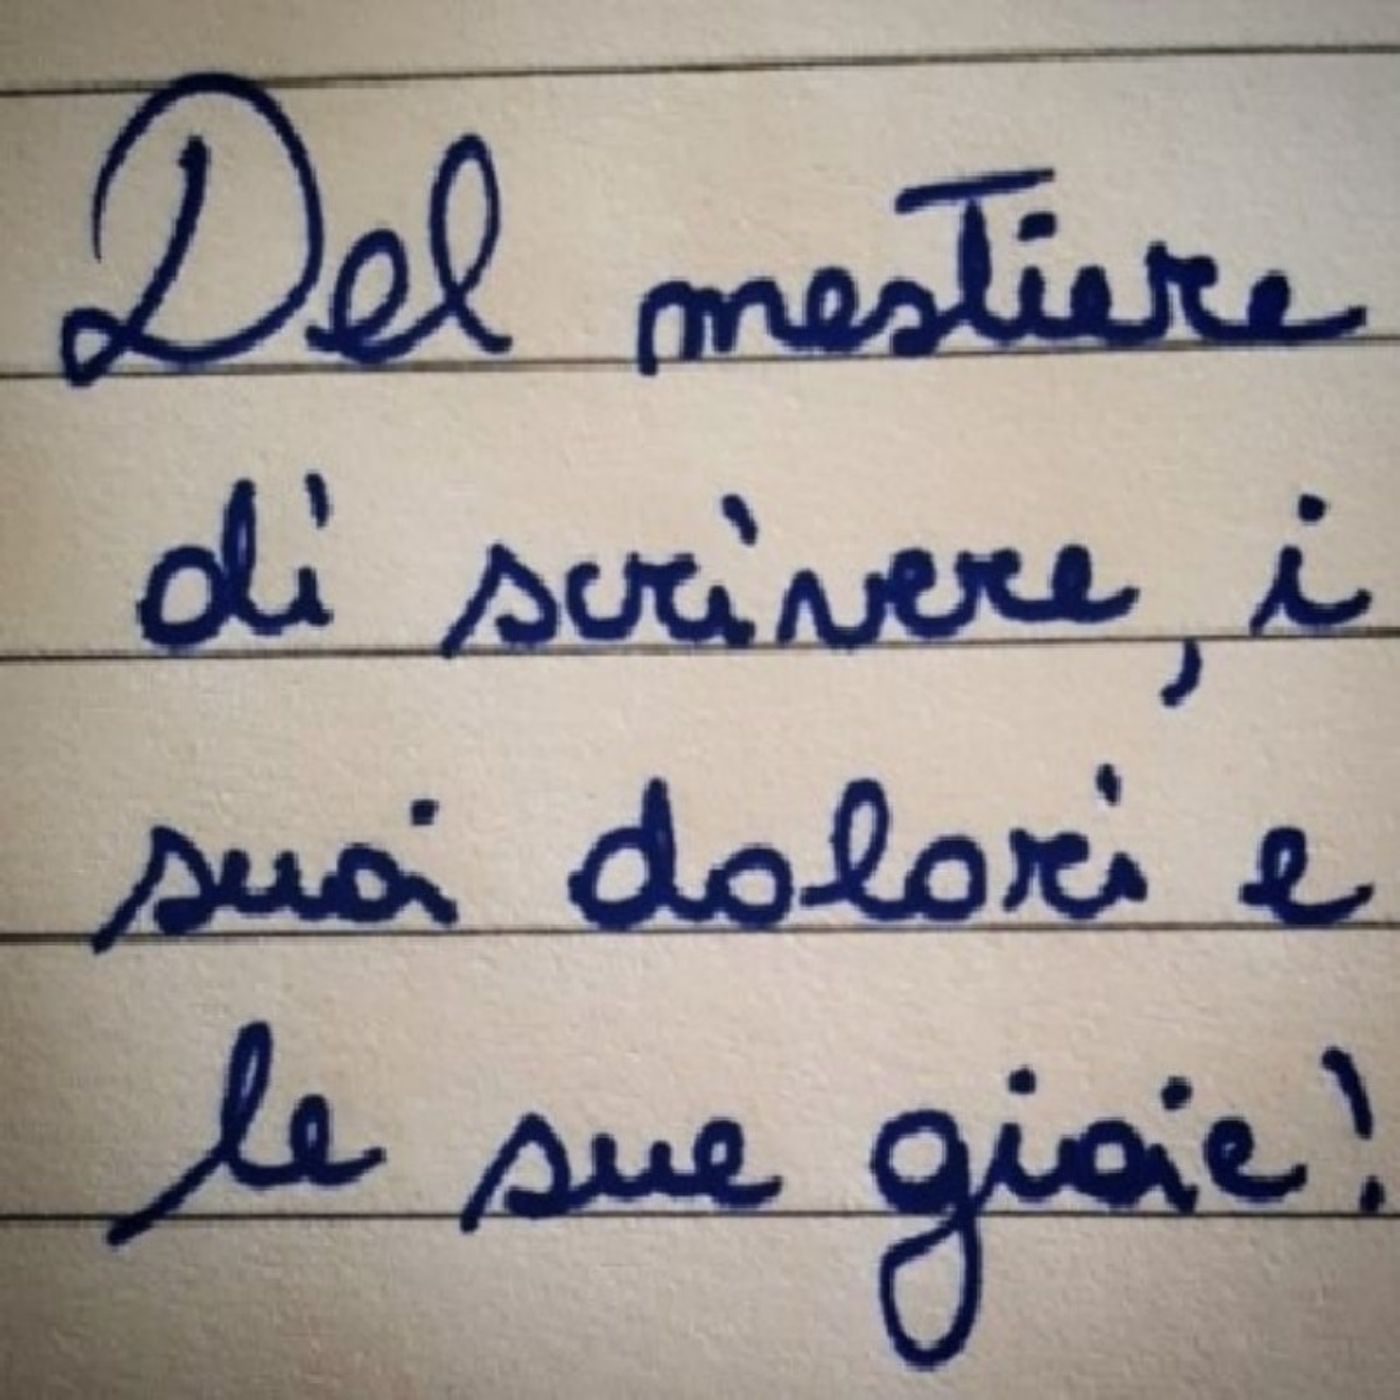 Del mestiere
di scrivere, i
suoi dolori e
le sue gioie!